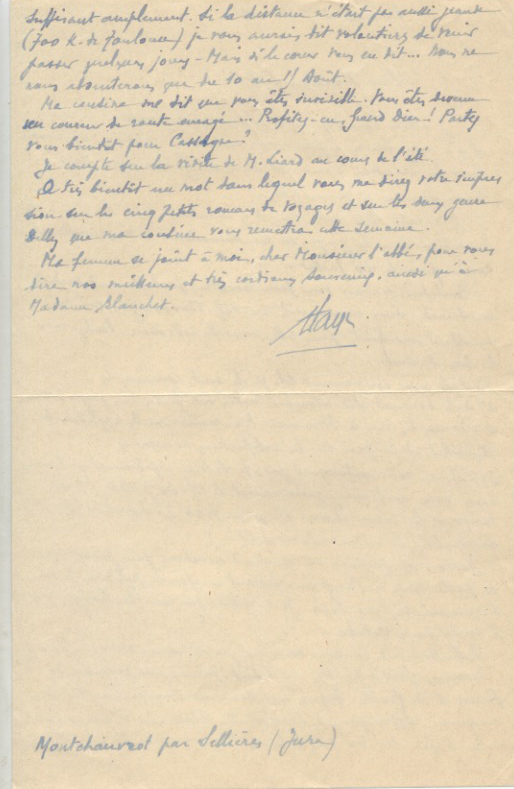 suffisant amplement. Si la distance n'était pas aussi grande
(700 k. de Toulouse) je vous aurais dit volontiers de venir
passer quelques jours – Mais si le cœur vous en dit... Nous ne
nous absenterons que du 10 au 11 Août.
Ma cousine me dit que vous êtes invisible. Vous êtes devenu
un coureur de route enragé... Profitez-en, Grand Dieu! Partez
vous bientôt pour Cassagne?
Je compte sur la visite de M. Liard au cours de l'été.
A très bientôt un mot dans lequel vous me direz votre impres
sion sur les cinq petits romans de voyages et sur les deux genre
Delly que ma cousine vous remettra cette semaine.
Ma femme se joint à moi, cher Monsieur l'abbé, pour vous
dire nos meilleurs et très cordiaux souvenirs, aussi qu'à
Madame Blanchet.
Montchauvrot par Sellières (Jura)